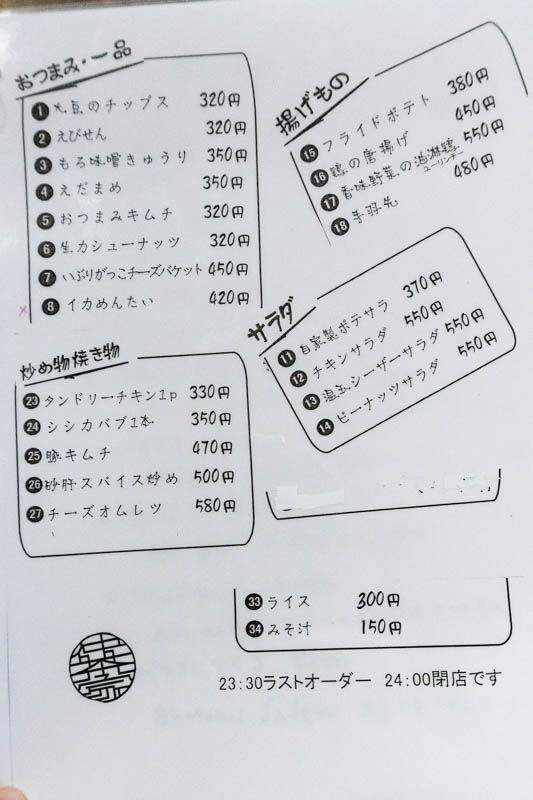 おつまみ・一品
1 大豆のチップス 320円
2 えびせん 320円
3 もろ味噌きゅうり 350円
4 えだまめ 350円
5 おつまみキムチ 320円
6 生カシューナッツ 320円
7 いぶりがっこチーズバケット 450円
× 8 イカめんたい 420円
揚げもの
15 フライドポテト 380円
16 鶏の唐揚げ 450円
17 香味野菜の油淋鶏 550円
ユーリンチー
18 手羽先 480円
サラダ
11 自家製ポテサラ 370円
12 チキンサラダ 550円
13 温玉シーザーサラダ 550円
14 ピーナッツサラダ 550円
炒め物焼き物
23 タンドリーチキン1p 330円
24 シシカバブ1本 350円
25 豚キムチ 470円
26 砂肝スパイス炒め 500円
27 チーズオムレツ 580円
33 ライス 300円
34 みそ汁 150円
23:30ラストオーダー 24:00閉店です